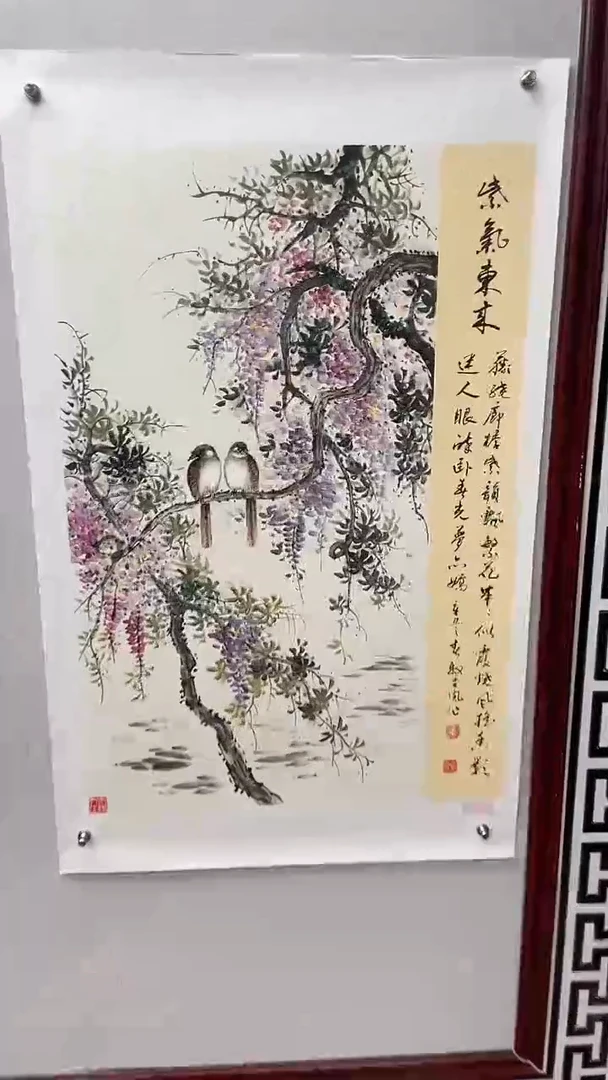 紫氣東来
藤繞廊檐紫韻飄繁花串串似霞燒風搖香影
迷人眼醉卧春光夢亦嬌